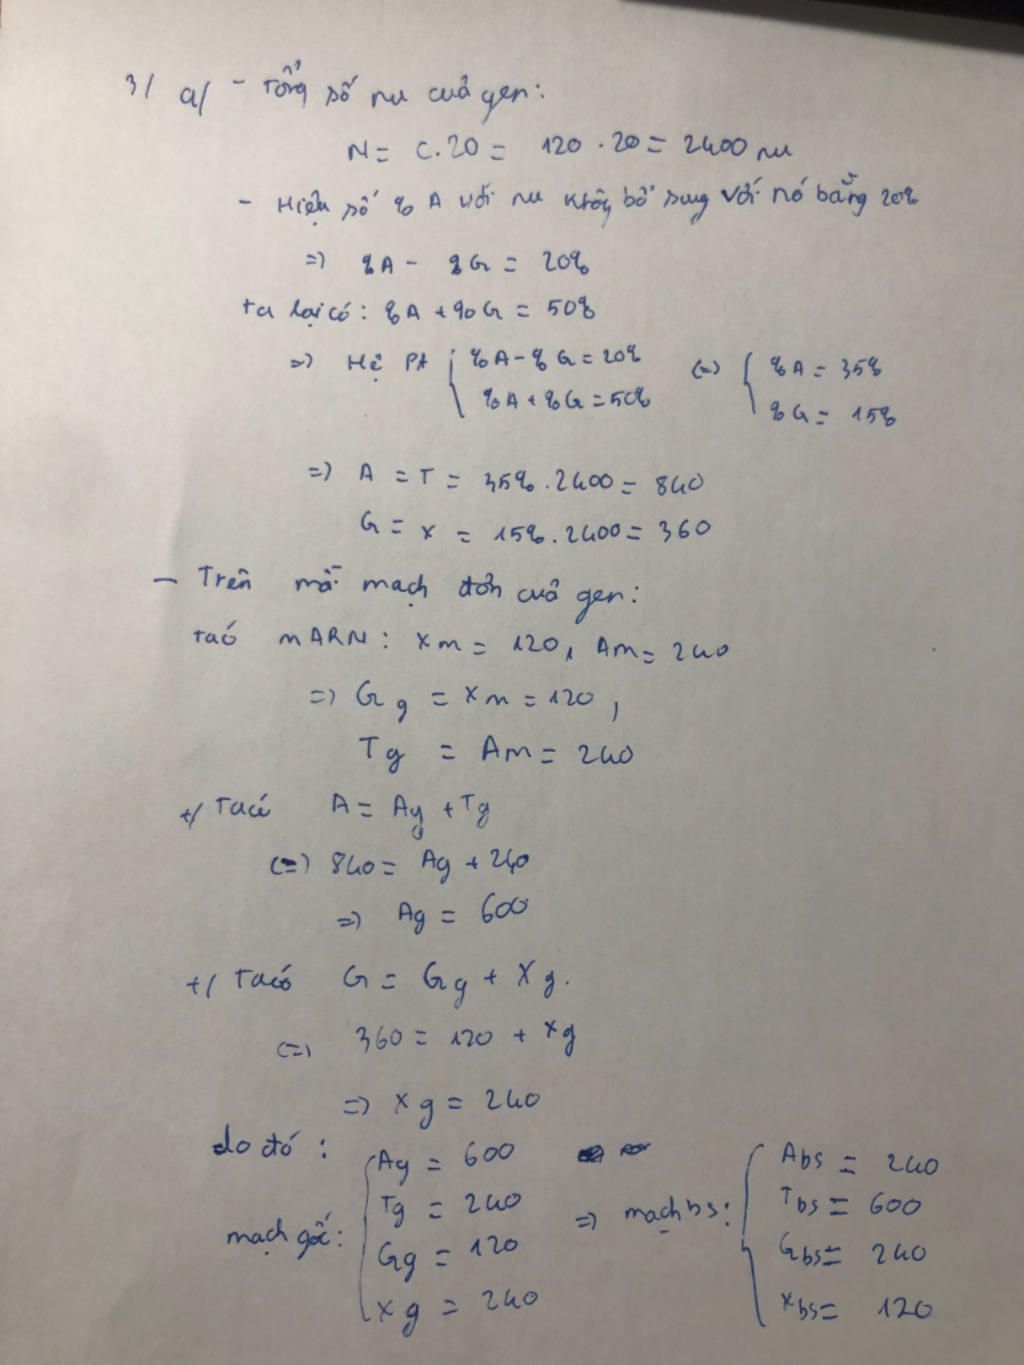 3/ a/ - Tổng số nu của gen:
N = C.20 = 120.20 = 2400 nu
- Hiệu số % A với nu không bổ sung với nó bằng 20%
=> %A - %G = 20%
ta lại có: %A + %G = 50%
=> Hệ Pt { %A - %G = 20% (=) { %A = 35%
%A + %G = 50% %G = 15%
=> A = T = 35%.2400 = 840
G = X = 15%.2400 = 360
- Trên mỗi mạch đơn của gen:
ta có mARN: Xm = 120, Am = 240
=> Gg = Xm = 120,
Tg = Am = 240
+/ Ta có A = Ag + Tg
(=) 840 = Ag + 240
=> Ag = 600
+/ Ta có G = Gg + Xg.
(=) 360 = 120 + Xg
=> Xg = 240
do đó:
mạch gốc: { Ag = 600 => mạch bs: { Abs = 240
Tg = 240 Tbs = 600
Gg = 120 Gbs = 240
Xg = 240 Xbs = 120